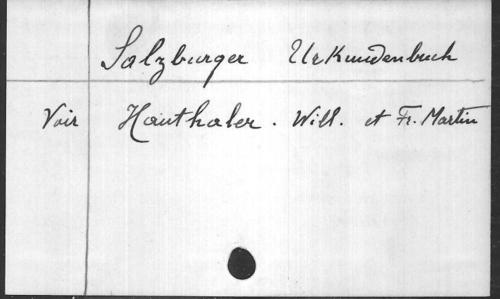 Salzburger Urkundenbuch
Voir Hauthaler. Will. et Fr. Martin